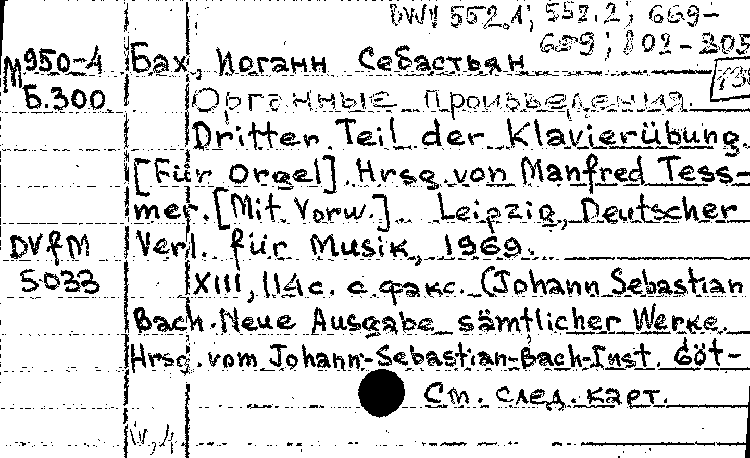 BWV 552.1; 552.2; 669-
689; 802-805
М950-4 Бах, Иоганн Себастьян
Б.300 Органные произведения.
Dritter Teil der Klavierübung.
[Für Orgel]. Hrsg. von Manfred Tess-
mer. [Mit Vorw.]. Leipzig, Deutscher
DVfM Verl. für Musik, 1969.
5033 XIII, 114 с. с факс. (Johann Sebastian
Bach. Neue Ausgabe sämtlicher Werke.
Hrsg. vom Johann-Sebastian-Bach-Inst. Göt-
См. след. карт.
IV,4